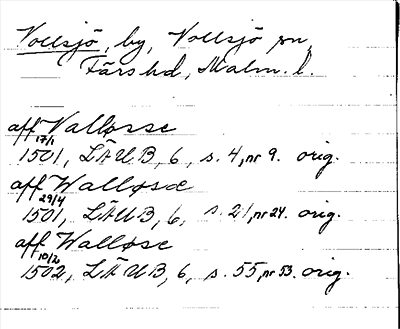 Vollsjö, by, Vollsjö sn,
Färs hd, Malm. l.
aff Valløsse
17/1
1501, LÄUB, 6, s. 4, nr 9. orig.
aff Walløsæ
29/4
1501, LÄUB, 6, s. 21, nr 24. orig.
aff Walløse
10/2
1502, LÄUB, 6, s. 55, nr 53. orig.